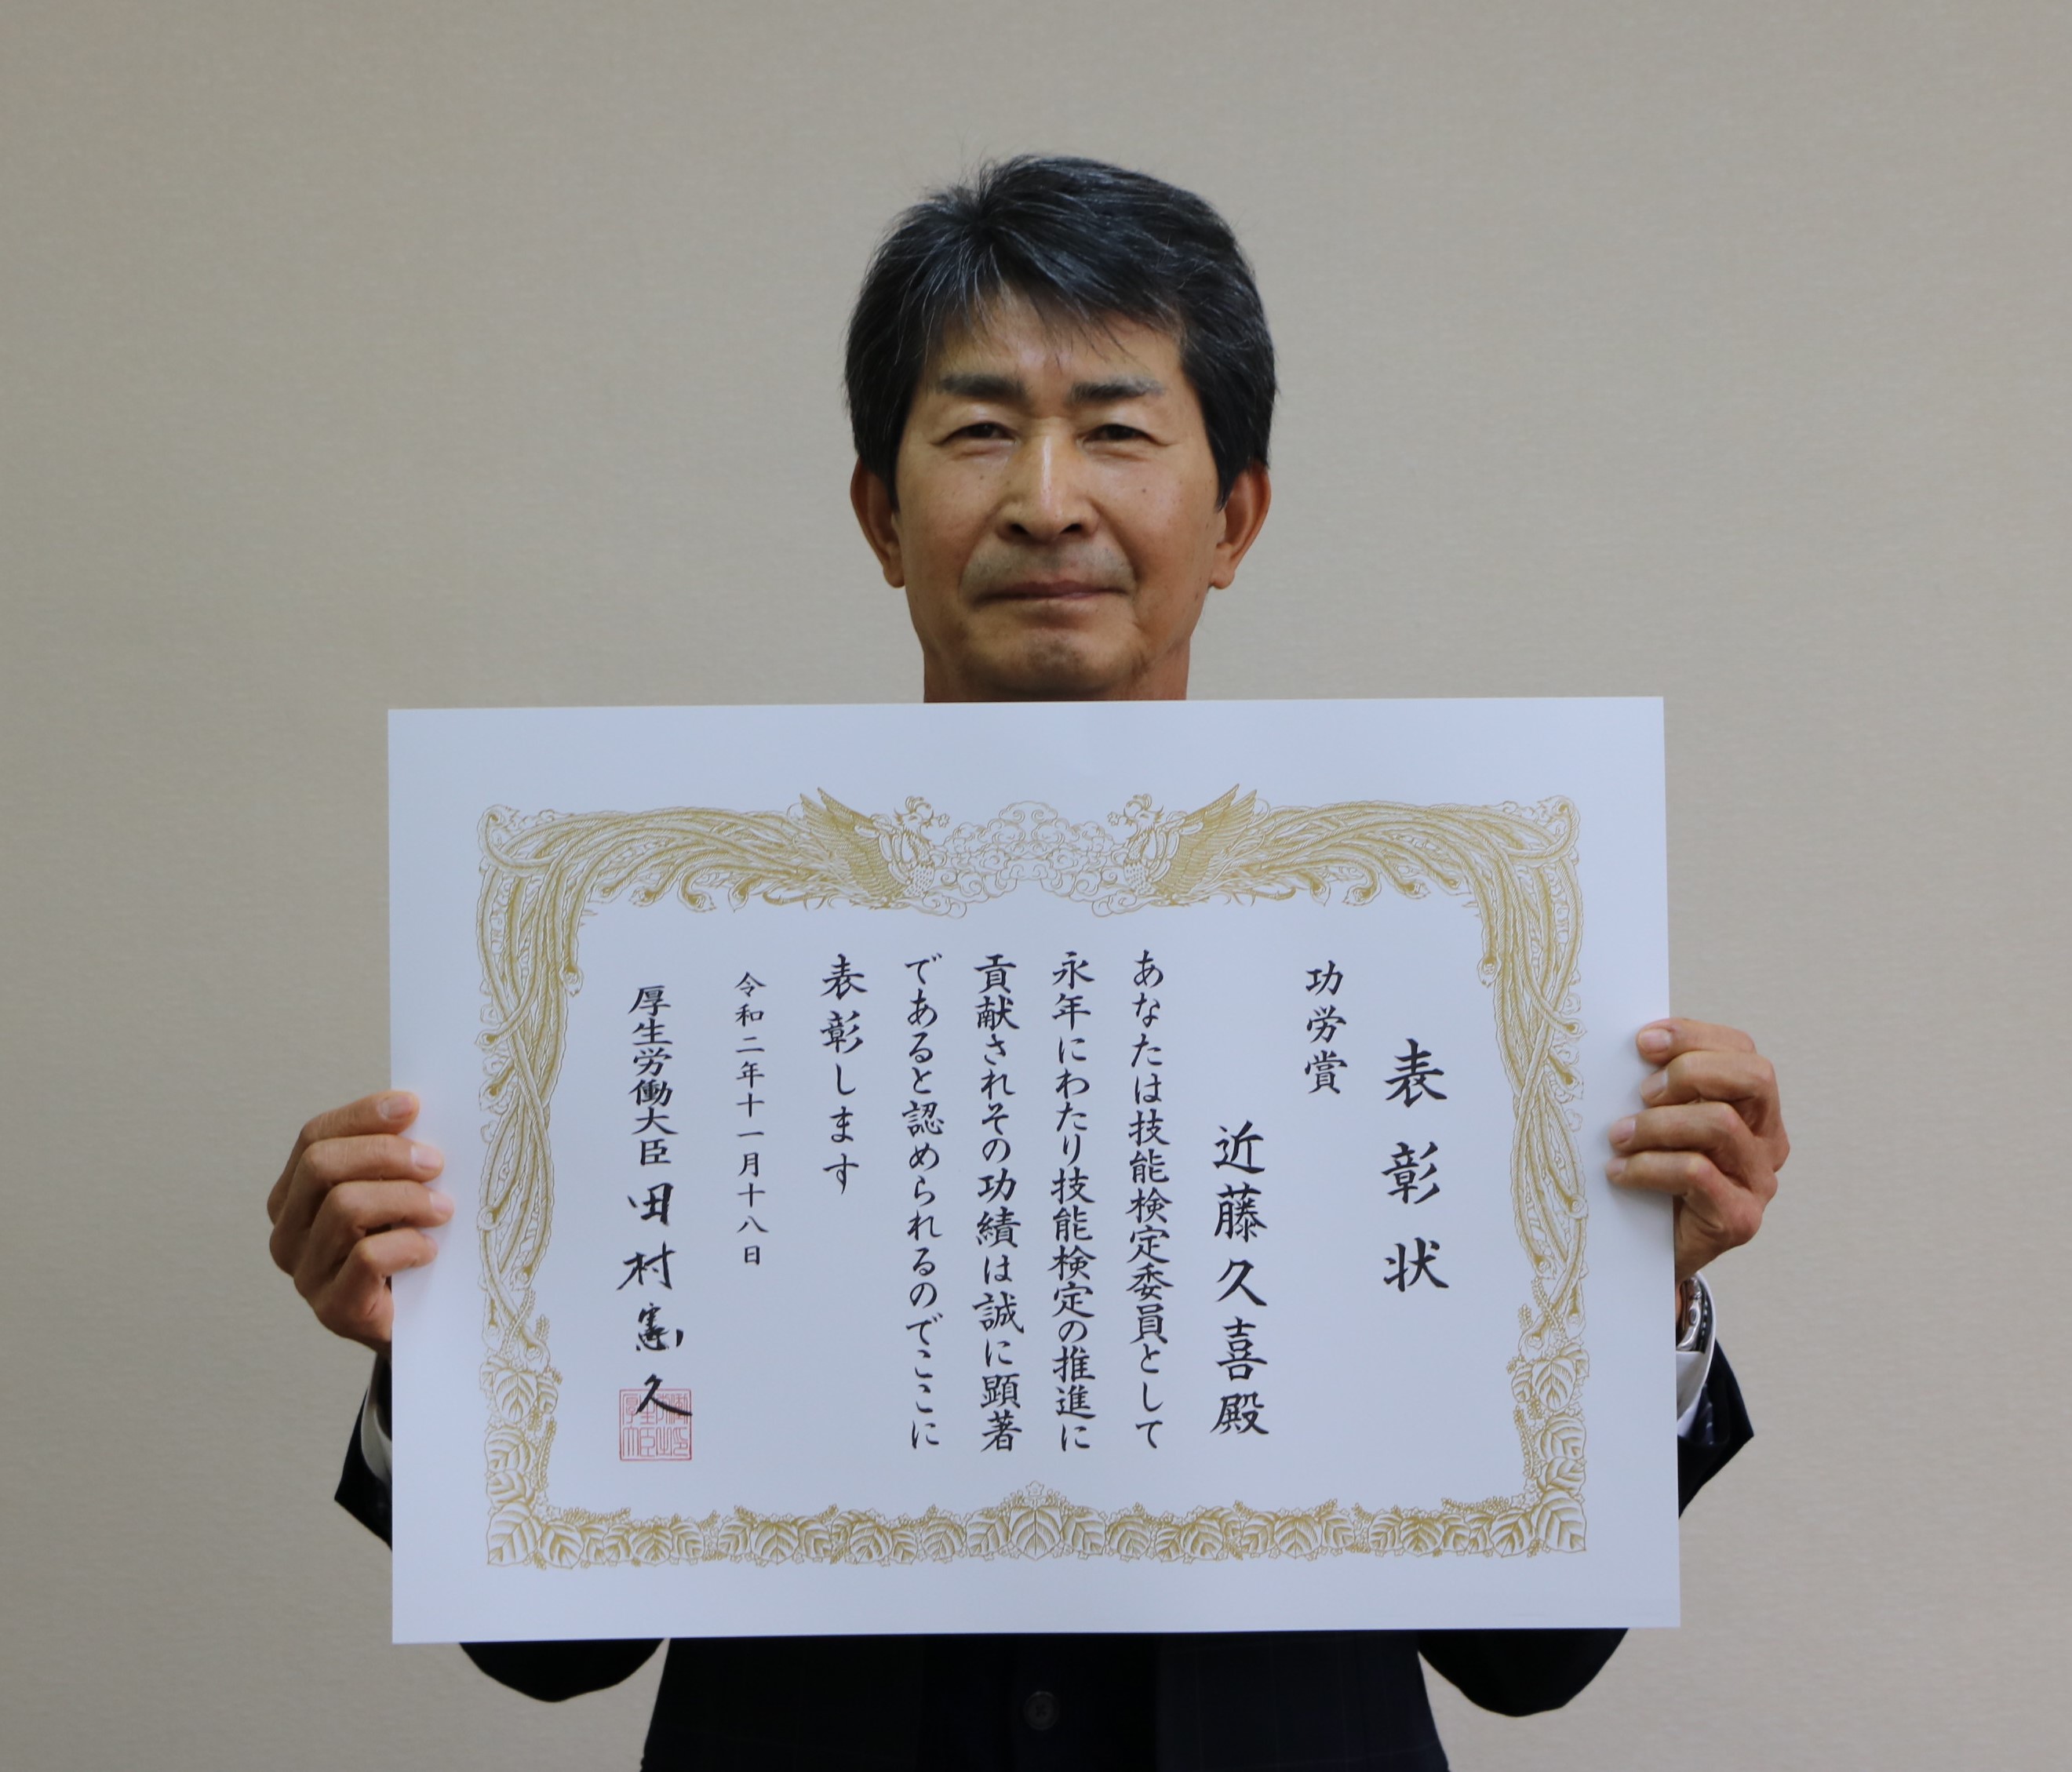 表彰状
功労賞
近藤久喜殿
あなたは技能検定委員として
永年にわたり技能検定の推進に
貢献されその功績は誠に顕著
であると認められるのでここに
表彰します
令和二年十一月十八日
厚生労働大臣 田村憲久